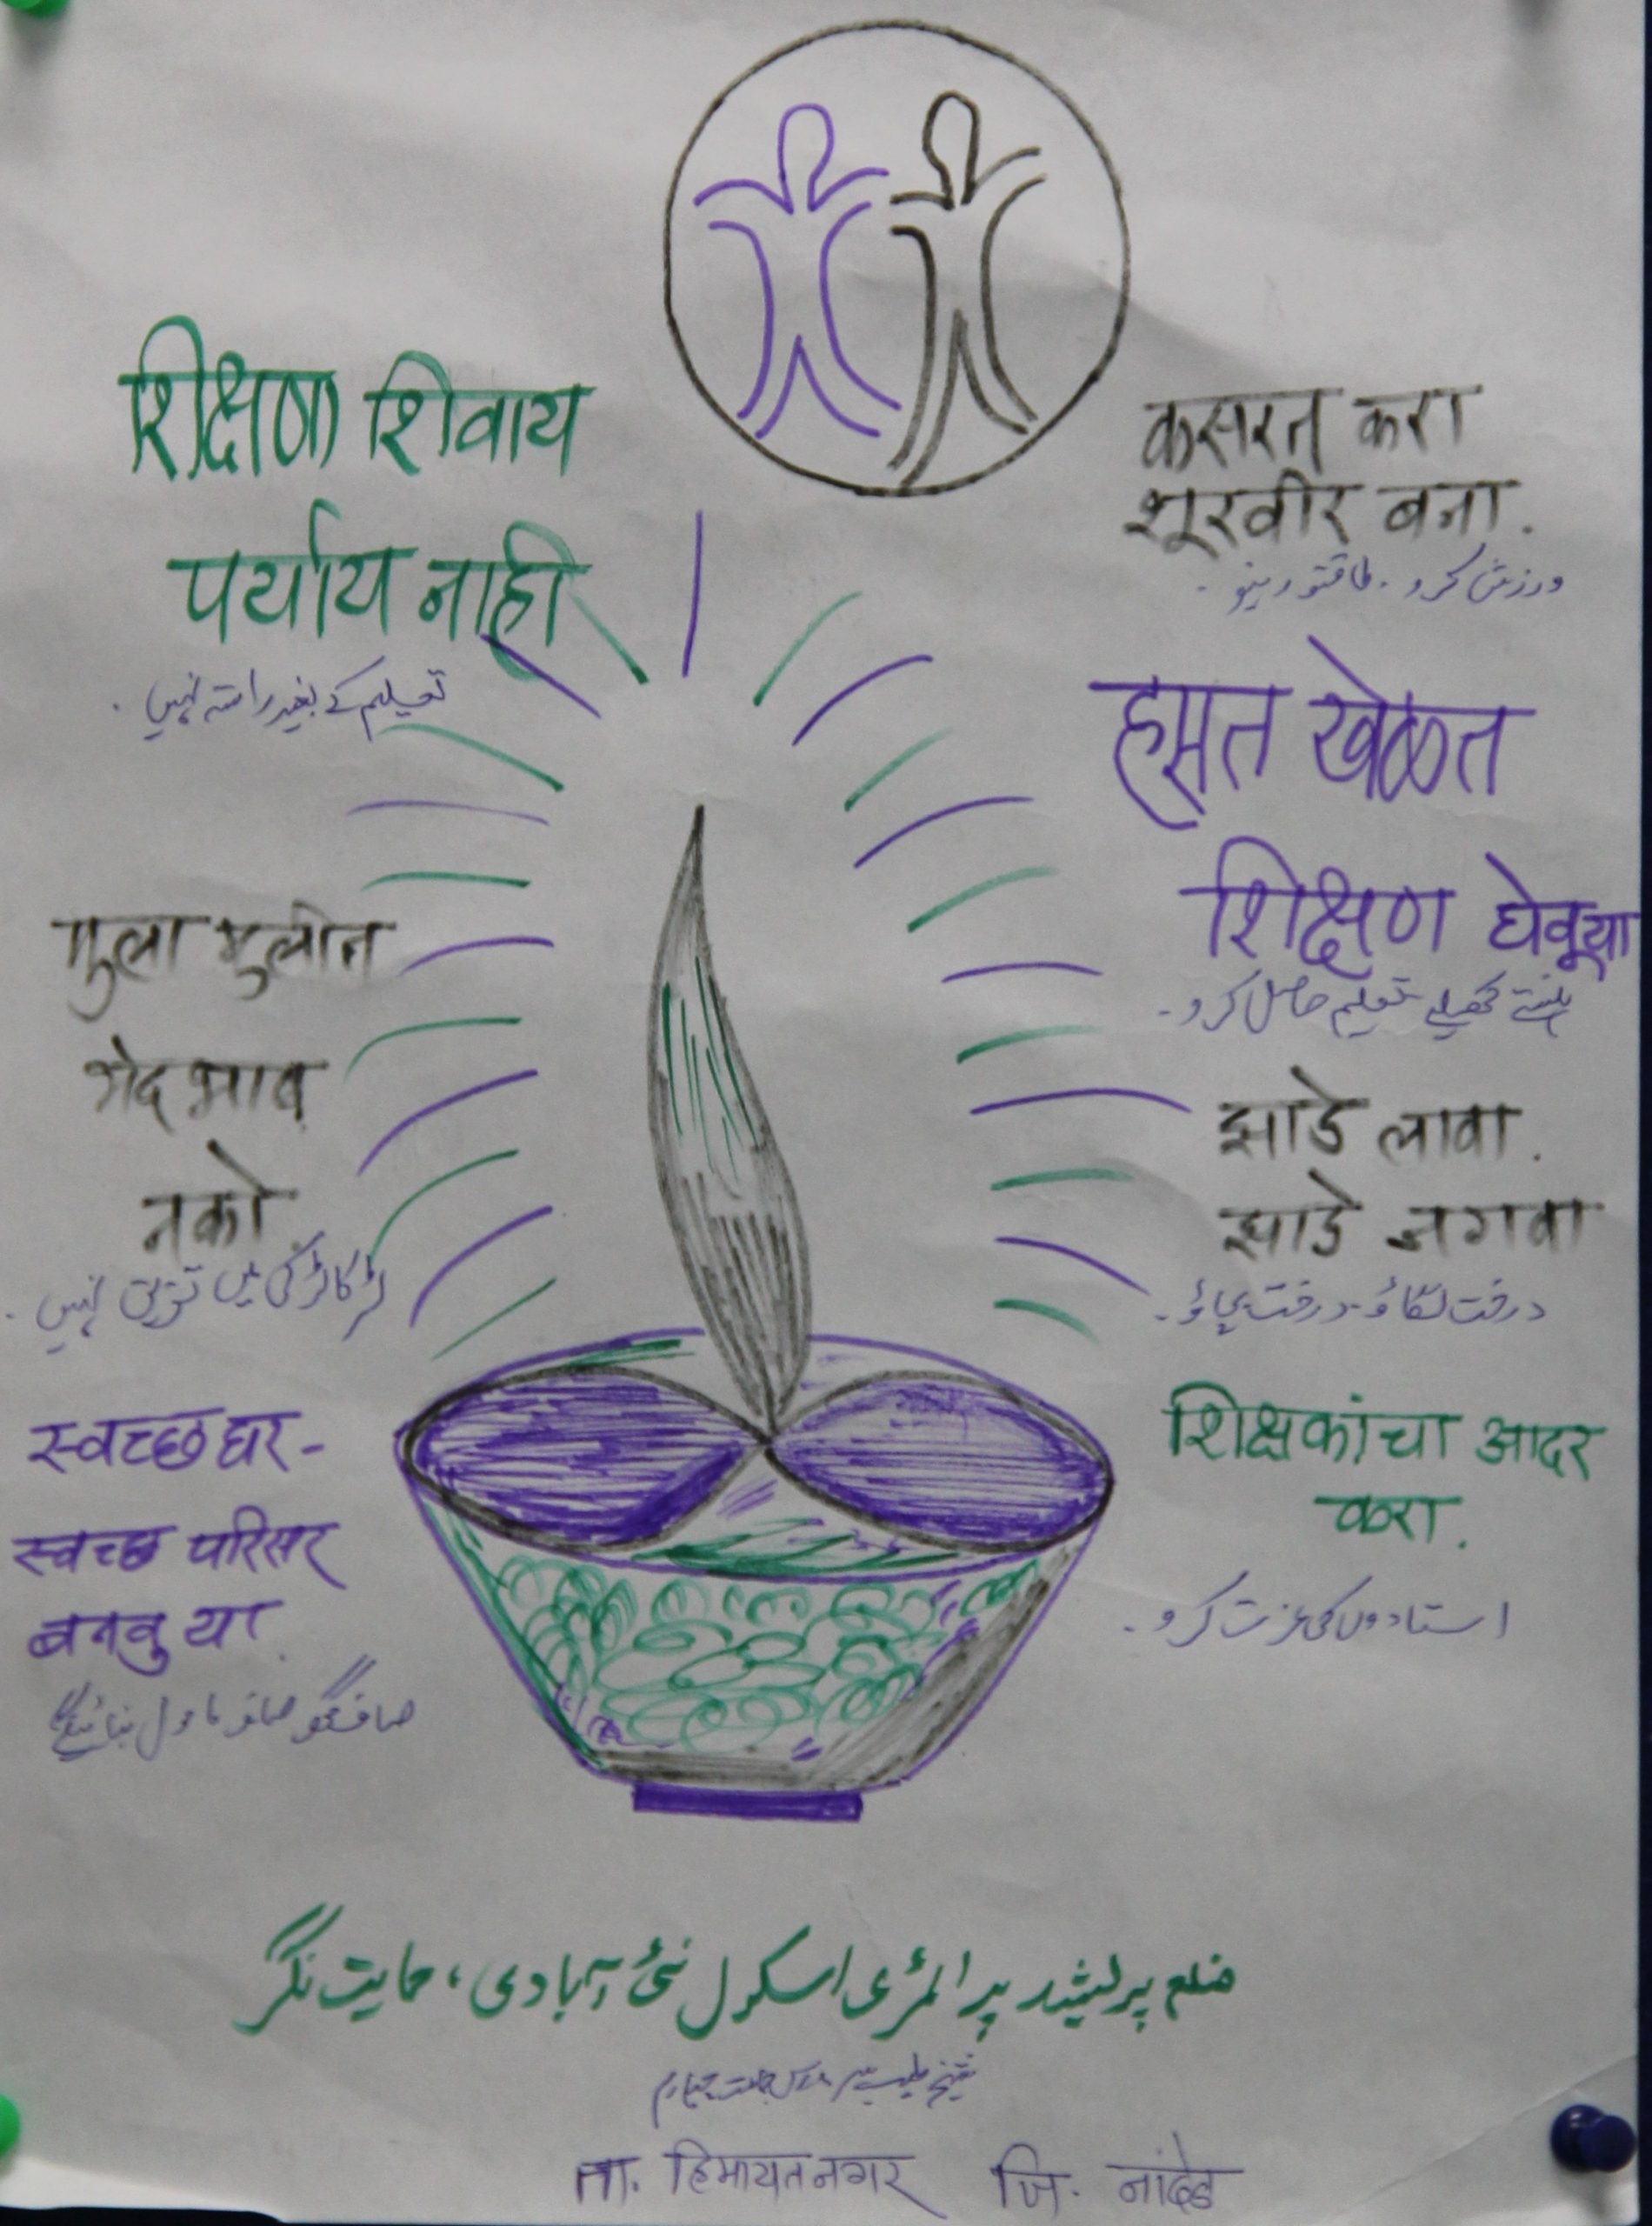 शिक्षणा शिवाय
पर्याय नाही
تعلیم کے بغیر راستہ نہیں.
मुला मुलीन
भेद भाव
नको.
لڑکا لڑکی میں تفریق نہیں.
स्वच्छ घर-
स्वच्छ परिसर
बनवु या.
صاف ماحول بنائینگے
कसरत करा
शूरवीर बना.
ورزش کرو. طاقتور بنو.
हसत खेळत
शिक्षण घेवूया
ہنستے کھیلتے تعلیم حاصل کرو۔
झाडे लावा.
झाडे जगवा
درخت لگاؤ۔ درخت بچاؤ۔
शिक्षकांचा आदर
करा.
استادوں کی عزت کرو۔
ضلع پریشد پرائمری اسکول نئی آبادی، حمایت نگر
ता. हिमायतनगर जि. नांदेड